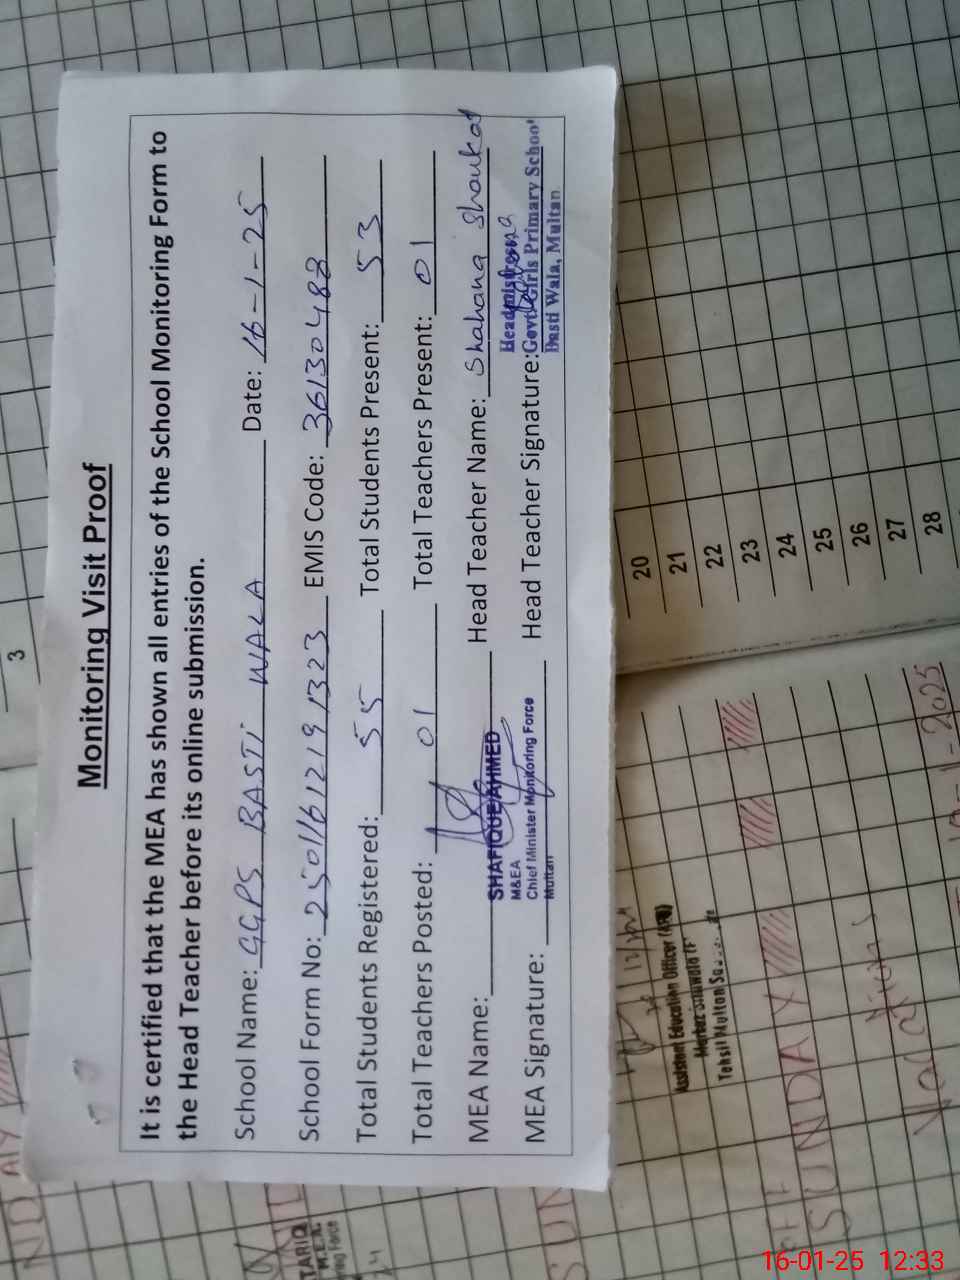 Monitoring Visit Proof
It is certified that the MEA has shown all entries of the School Monitoring Form to
the Head Teacher before its online submission.
School Name: GGPS BASTI WALA Date: 16-1-25
School Form No: 250116121913 23 EMIS Code: 36130488
Total Students Registered: 55 Total Students Present: 53
Total Teachers Posted: 01 Total Teachers Present: 01
MEA Name: SHAFIQUE AHMED Head Teacher Name: Shahana Shoukat
M&EA
Chief Minister Monitoring Force
Multan
MEA Signature: Head Teacher Signature:
Headmistress
Govt. Girls Primary School
Basti Wala, Multan
3
20
21
22
23
24
25
26
27
28
Assistant Education Officer
Tehsil Multan
SUNDAY
Vacations
TARIQ
M.E.A.
16-01-25 12:33